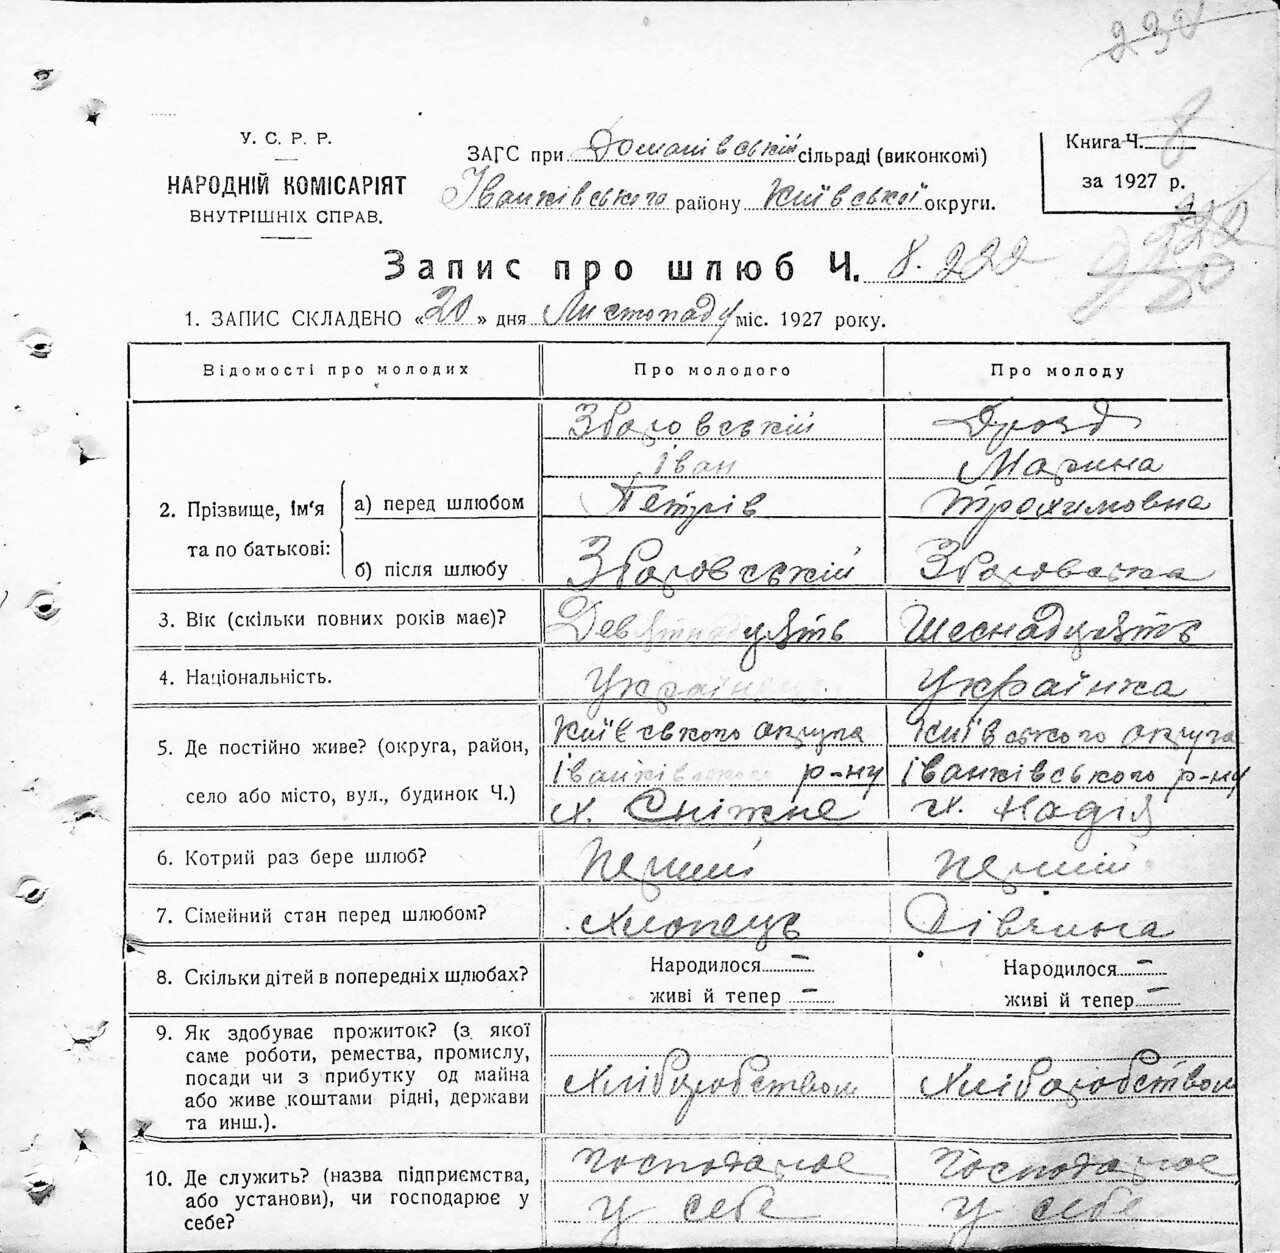 232
У. С. Р. Р.
НАРОДНІЙ КОМІСАРІЯТ
ВНУТРІШНІХ СПРАВ.
ЗАГС при Доманівській сільраді (виконкомі)
Іванківського району Київської округи.
Книга Ч. 8
за 1927 р.
222
Запис про шлюб Ч. 8. 222
1. ЗАПИС СКЛАДЕНО «20» дня Листопаду міс. 1927 року.
Відомості про молодих Про молодого Про молоду
2. Прізвище, ім‘я та по батькові:
а) перед шлюбом
Зборовській Дрозд
Іван Марина
Петрів Трохимовна
б) після шлюбу Зборовській Зборовська
3. Вік (скільки повних років має)? Девятнадцять Шеснадцять
4. Національність. Українець Українка
5. Де постійно живе? (округа, район, село або місто, вул., будинок Ч.)
Київського округа Київського округа
Іванківського р-ну Іванківського р-ну
х. Сніжне х. Надія
6. Котрий раз бере шлюб? Перший Перший
7. Сімейний стан перед шлюбом? Хлопець Дівчина
8. Скільки дітей в попередніх шлюбах? Народилося — Народилося —
живі й тепер — живі й тепер —
9. Як здобуває прожиток? (з якої
саме роботи, ремества, промислу,
посади чи з прибутку од майна
або живе коштами рідні, держави
та инш.).
Хліборобством Хліборобством
10. Де служить? (назва підприємства,
або установи), чи господарює у
себе?
Господарює Господарює
у себе у себе